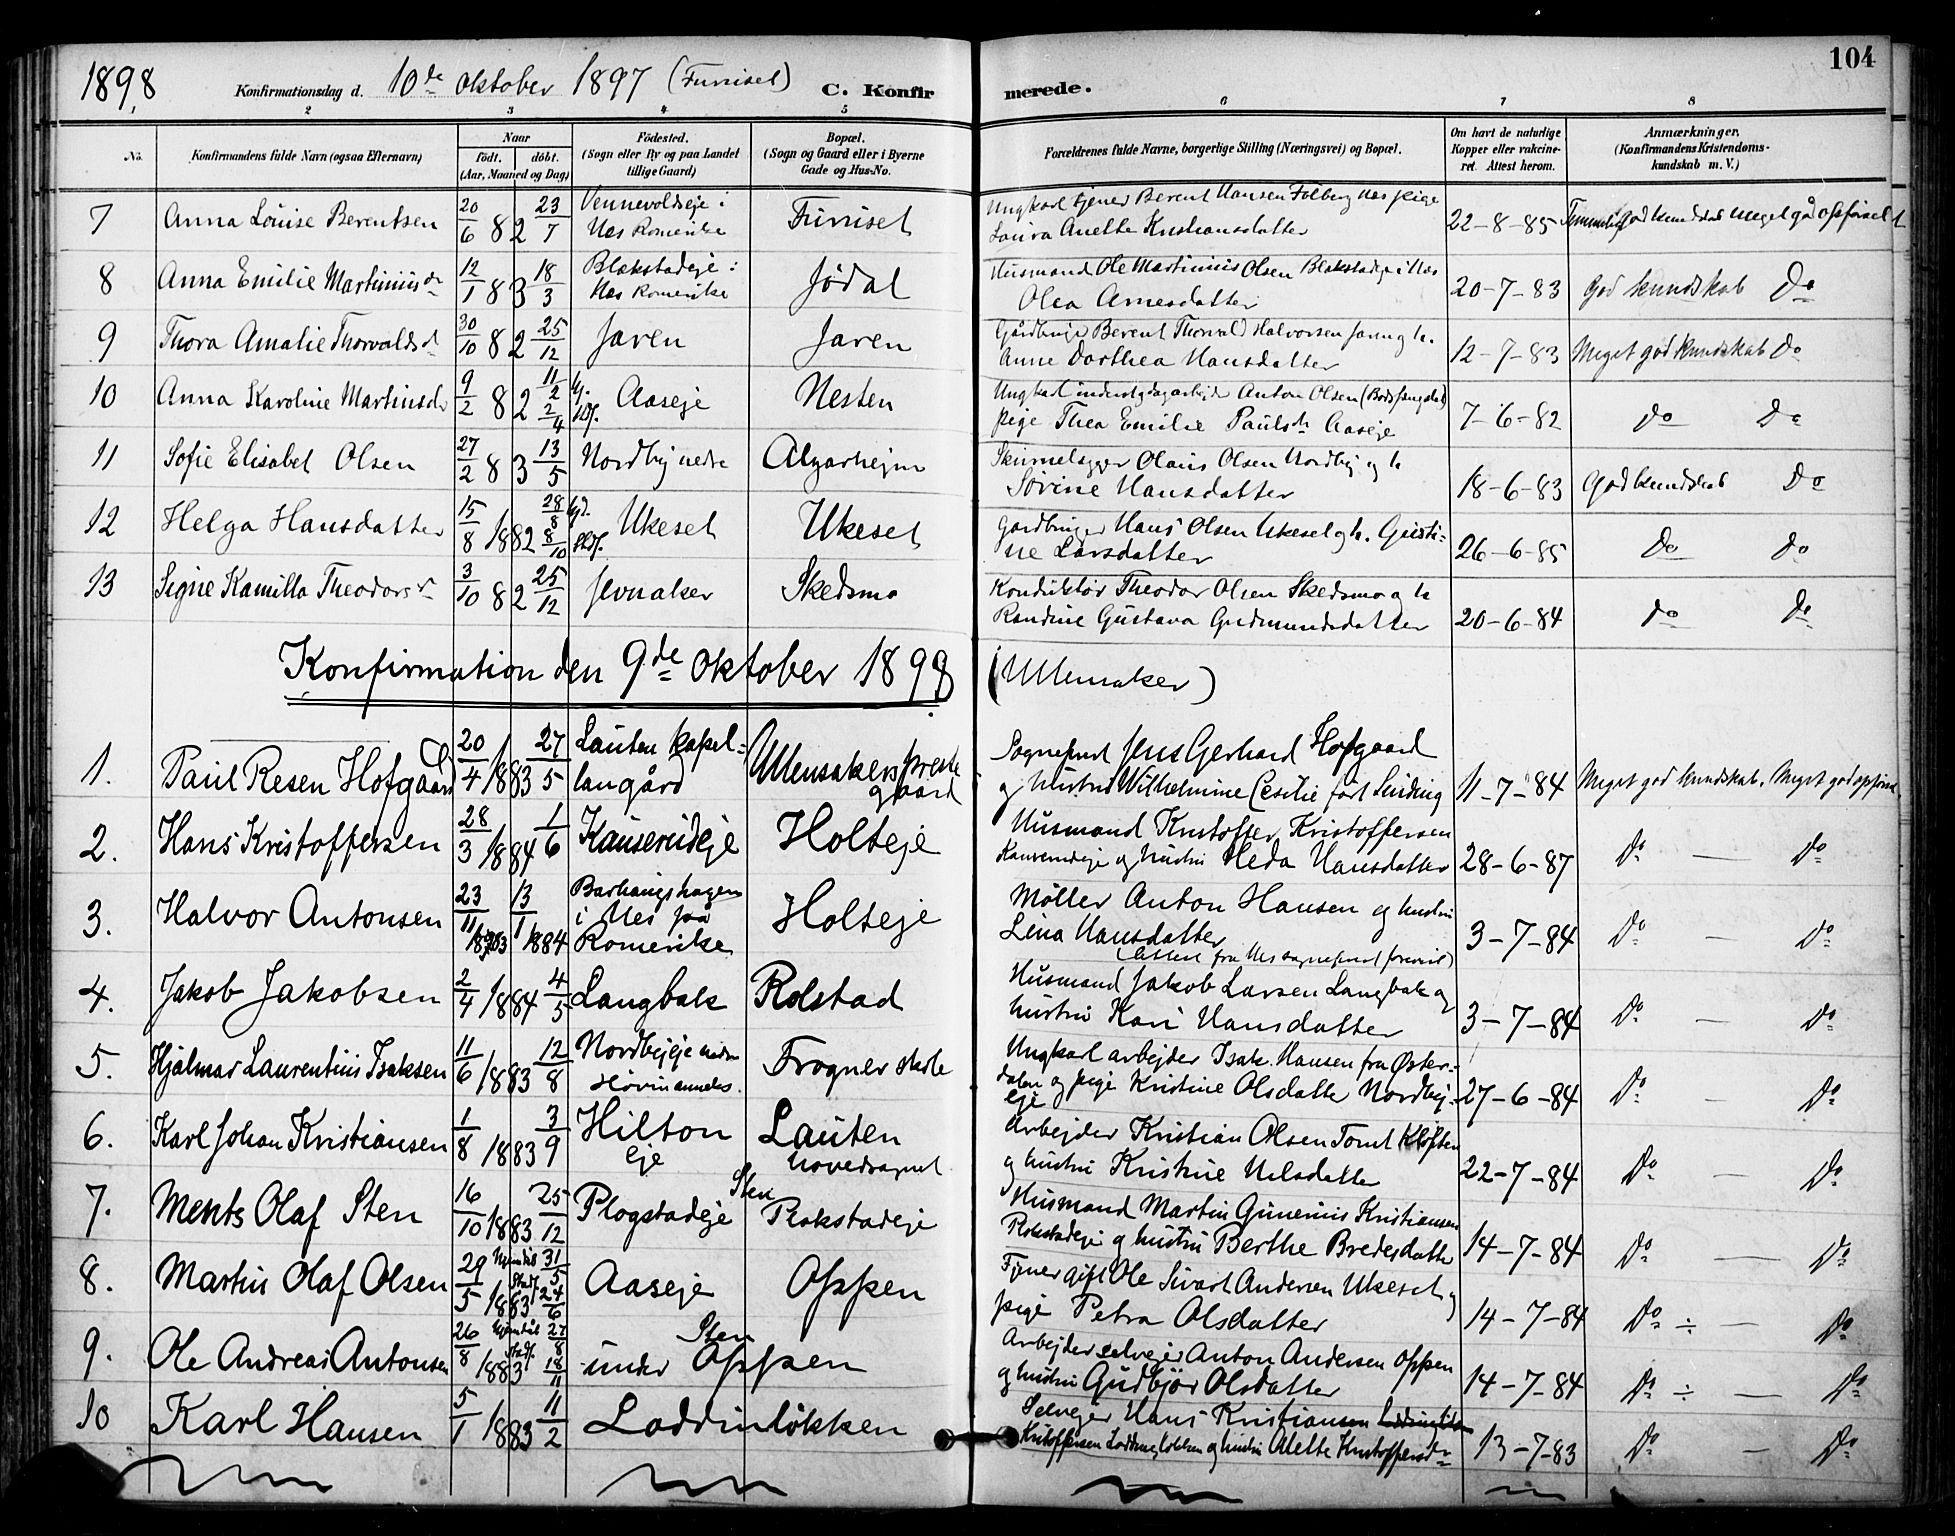 1898
Konfirmationsdag d. 10de Oktober 1897 (Furuset) C. Konfirmerede. 104
1 2 3 4 5 6 7 8
No. Konfirmandens fulde Navn (ogsaa Efternavn) Naar født. døbt. (Aar, Maaned og Dag) Fødested. (Sogn eller By og paa Landet tillige Gaard) Bopæl. (Sogn og Gaard eller i Byerne Gade og Hus-No. Forældrenes fulde Navne, borgerlige Stilling (Næringsvei) og Bopæl. Om havt de naturlige Kopper eller vakcineret. Attest herom. Anmærkninger. (Konfirmandens Kristendomskundskab m. V.)
7 Anna Louise Berentsen 20/6 82 23/7 Vennevoldseje i Nes Romerike Furuset Ungkarl tjener Berent Hansen Folberg Nes pige
Laura Anette Kristiansdatter 22-8-85 Temmelig god kundskab meget gå opførselt
8 Anna Emilie Martiniusdr 12/1 83 18/3 Blakstadeje i Nes Romerike Jødal Husmand Ole Martinius Olsen Blakstadeje i Nes
Olea Arnesdatter 20-7-83 God kundskab Do
9 Thora Amalie Thorvaldsd 30/10 82 25/12 Jaren Jaren Gårdbruger Berent Thorvald Halvorsen Jaren og h.
Anne Dorthea Hansdatter 12-7-83 Meget god kundskab Do
10 Anna Karoline Martinsdr 9/2 82 11/2 2/4 Aaseje Nesten Ungkarl Anton Olsen
pige Thea Emilie Paulsdr Aaseje 7-6-82 do Do
11 Sofie Elisabet Olsen 27/2 83 13/5 Nordby nedre Algarhejm Skinnelægger Olaus Olsen Nordby og h
Sørine Hansdatter 18-6-83 God kundskab Do
12 Helga Hansdatter 15/8 1882 28/8 8/10 Ukeset Ukeset Gardbruger Hans Olsen Ukeset og h. Gusti-
ne Larsdatter 26-6-85 Do Do
13 Signe Kamilla Theodorsdr 3/10 82 25/12 Jevnaker Skedsmo Konduktør Theodor Olsen Skedsmo og h
Randine Gustava Gudmundsdatter 20-6-84 do Do
Konfirmation den 9de Oktober 1898 (Ullensaker)
1. Paul Resen Hofgaard 20/4 1883 27/5 Lauten kapellangård Ullensakers prestegaard Sogneprest Jens Gerhard Hofgaard
og hustru Wilhelmine Cecilie født Sinding 11-7-84 Meget god kundskab. Meget god opførsel
2. Hans Kristoffersen 28/3 1884 1/6 Kauserudeje Holteje Husmand Kristoffer Kristoffersen
Kauserudeje og hustru Heda Hansdatter 28-6-87 Do — Do
3. Halvor Antonsen 23/11 1883 13/1 1884 i Nes på Romerike Holteje Møller Anton Hansen og hustru
Lina Hansdatter
(attest fra Nes sogneprest forevist) 3-7-84 Do — Do
4. Jakob Jakobsen 2/4 1884 4/5 Langbak Rolstad Husmand Jakob Larsen Langbak og
hustru Kari Hansdatter 3-7-84 Do — Do
5. Hjalmar Laurentius Isaksen 11/6 1883 12/8 Nordbyeje nedre Hovin anneks. Frogner skole Ungkarl arbejder Isak Hansen fra Øster-
dalen og pige Kristine Olsdatter Nordby-
eje 27-6-84 Do — Do
6. Karl Johan Kristiansen 1/8 1883 3/9 Hilton eje Lauten hovedsognet Arbejder Kristian Olsen Tomt Kløften
og hustru Kristine Nilsdatter 22-7-84 Do — Do
7. Ments Olaf Sten 16/10 1883 25/12 Plogstadeje Sten Rokstadeje Husmand Martin Gunerius Kristiansen
Rokstadeje og hustru Berthe Bredesdatter 14-7-84 Do — Do
8. Martin Olaf Olsen 29/5 1883 hjemdøbt 31/5 Stadf. 24/6 Aaseje Oppen Tjener gift Ole Sivart Andersen Ukeset og
pige Petra Olsdatter 14-7-84 Do ÷ — Do
9. Ole Andreas Antonsen 26/8 1883 hjemdøbt 27/8 stadf. 18/11 under Sten Oppen Arbejder selvejer Anton Andersen Oppen
og hustru Gudbjør Olsdatter 14-7-84 Do ÷ — Do
10 Karl Hansen 5/1 1883 11/2 Loddinløkken Selvejer Hans Kristiansen
Kristoffersen Loddingløkken og hustru Alette Kristoffersdr 13-7-83 Do — Do